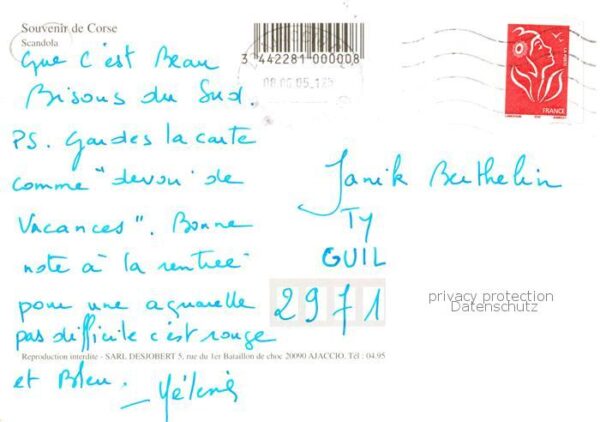 Souvenir de Corse
Scandola
3 442281 000008
Que c'est Beau
Bisous du Sud.
PS. Gardes la carte
comme "devoir de
Vacances". Bonne
note à la rentrée
pour une aquarelle
pas difficile c'est rouge
et Bleu.
Janik Berthelin
TY
GUIL
2971
LA POSTE
FRANCE
privacy protection
Datenschutz
Reproduction interdite - SARL DESJOBERT 5, rue du 1er Bataillon de choc 20090 AJACCIO. Tél : 04.95